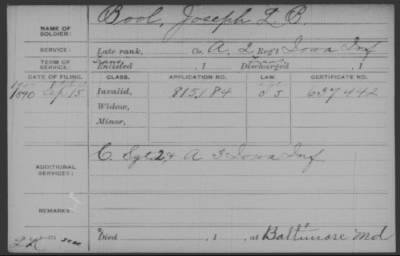 NAME OF SOLDIER: Bool, Joseph L. B.
SERVICE: Late rank, Co. A, 2 Reg't Iowa Inf
TERM OF SERVICE: Enlisted , 1 Discharged , 1
DATE OF FILING. CLASS. APPLICATION NO. LAW. CERTIFICATE NO.
1890 Sep 15 Invalid, 815184 637442
Widow,
Minor,
ADDITIONAL SERVICES: C. 2 & A 3 Iowa Inf
REMARKS:
Died , 1 , at Baltimore Md